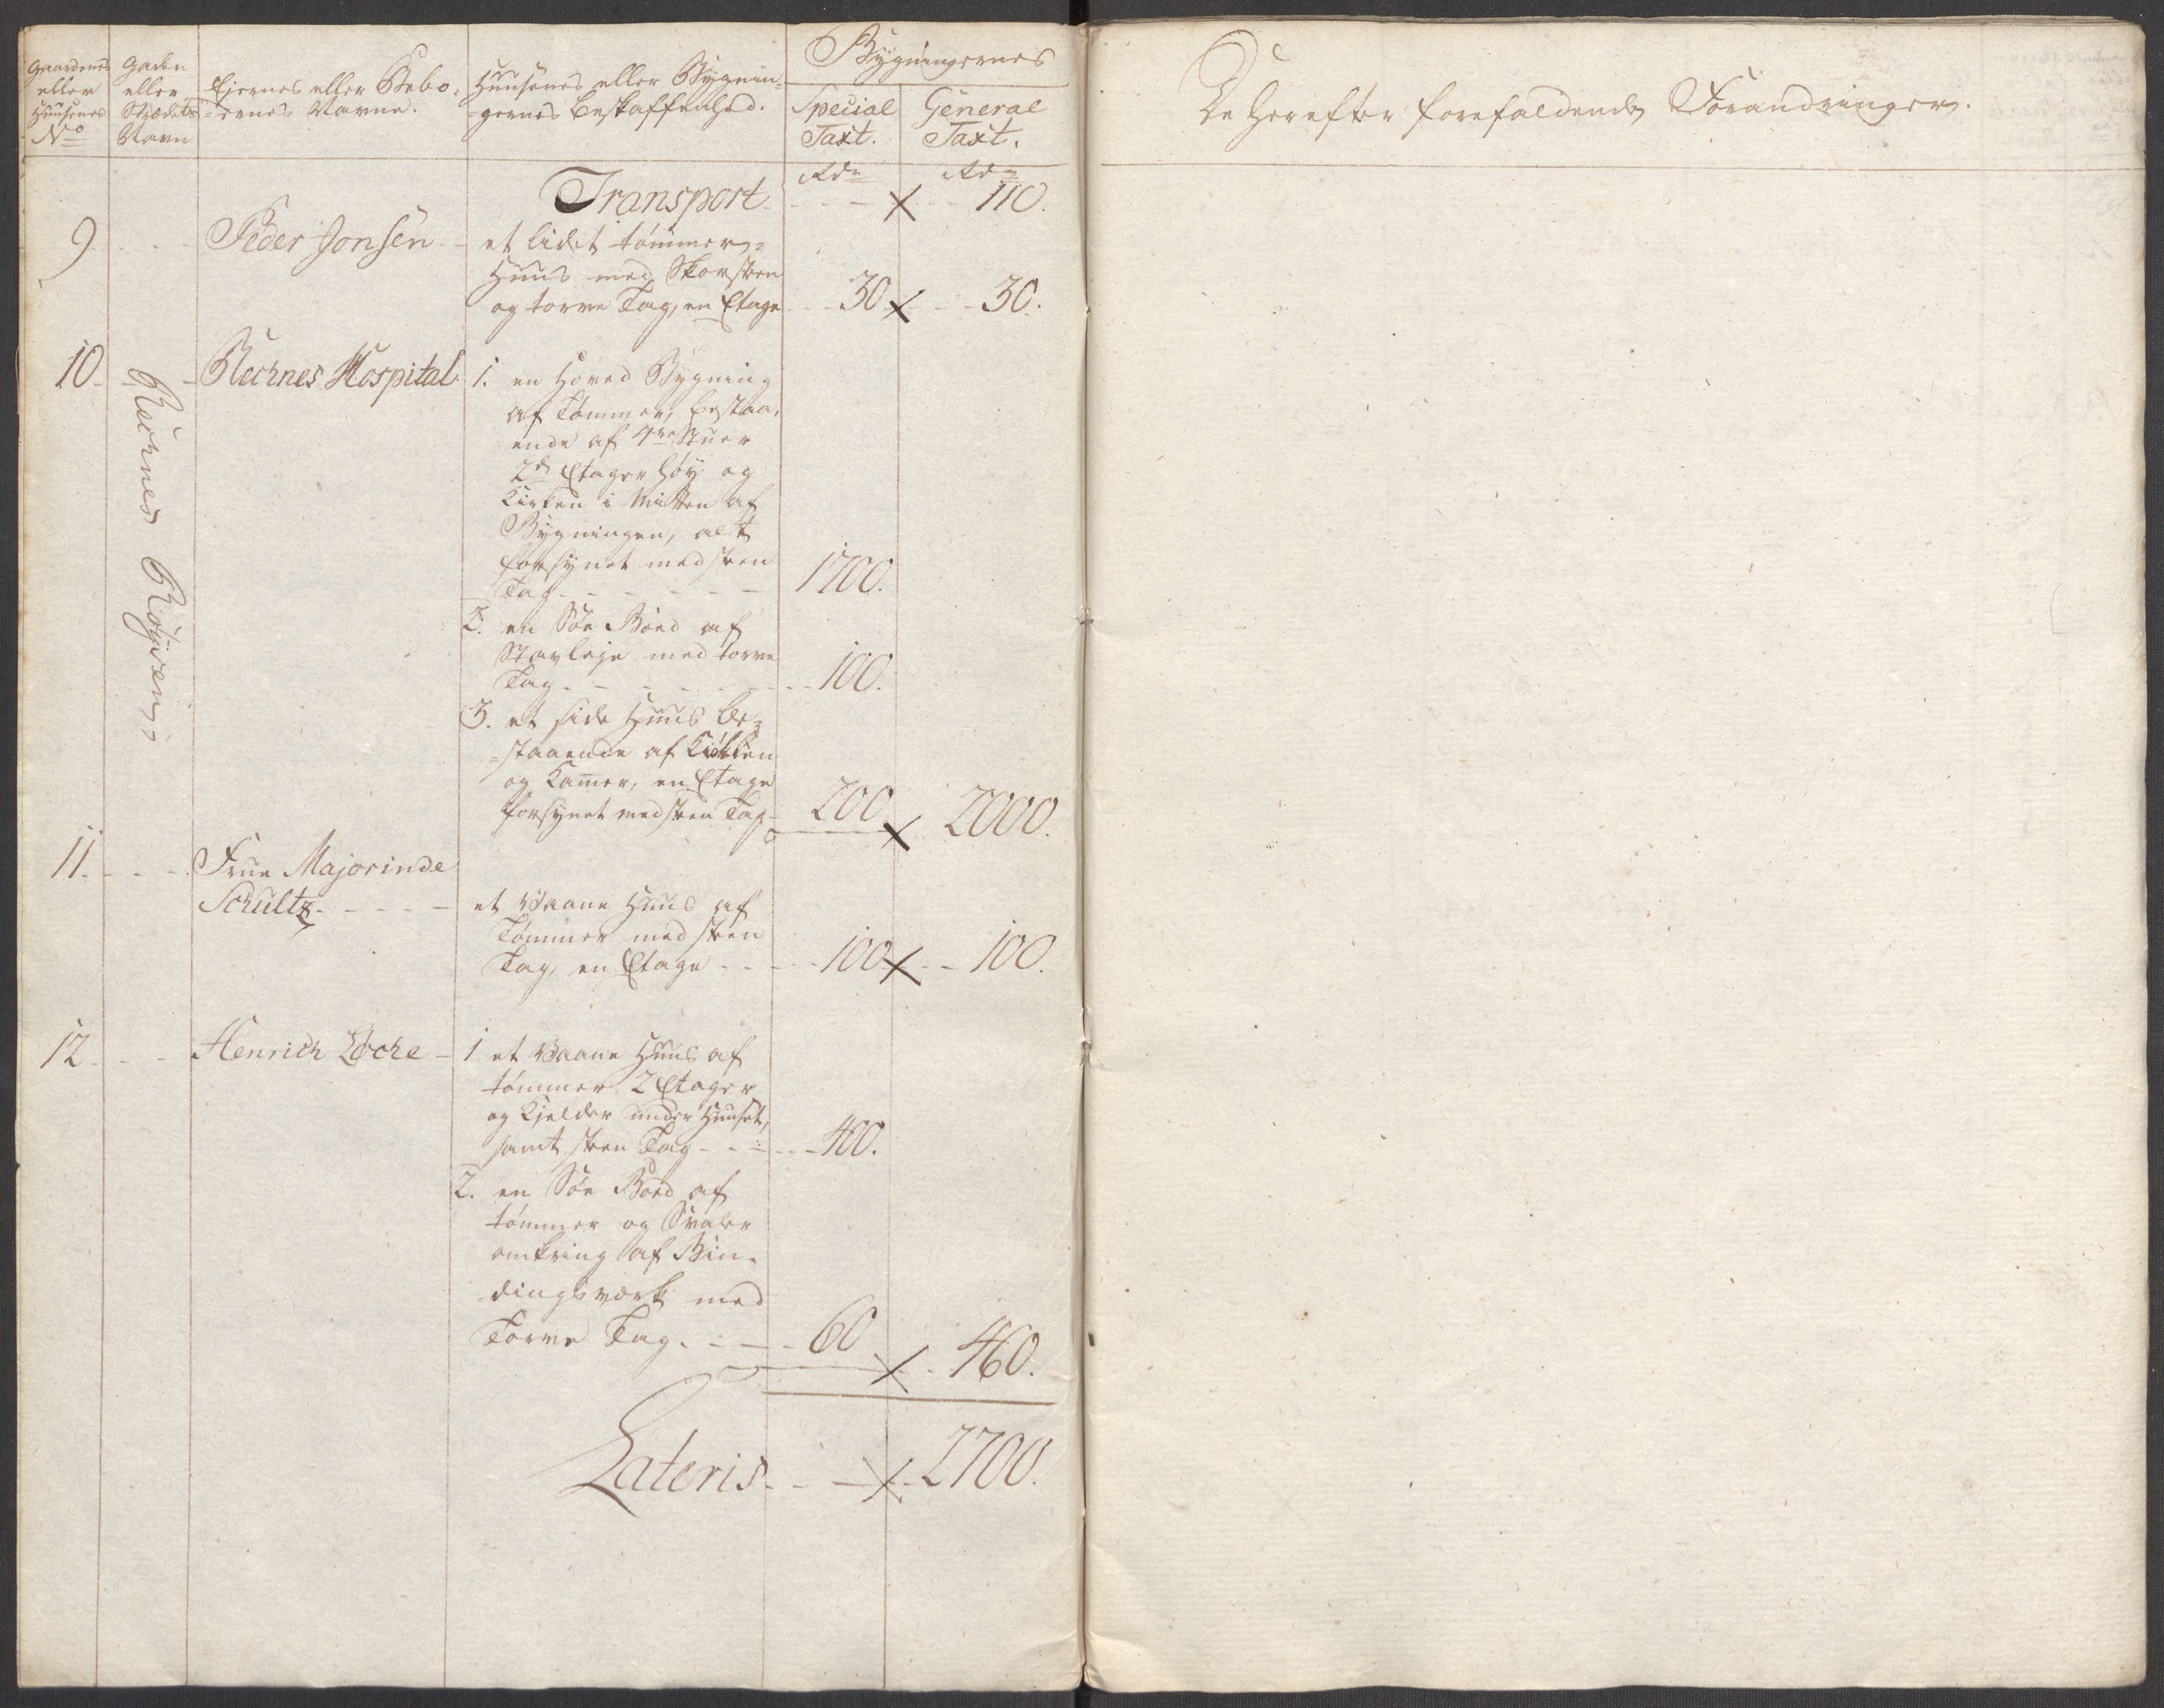 Gaardenes
eller
Huusenes
No
Gaden
eller
Strædets
Navn
Ejernes eller Bebo-
ernes Navne.
Huusenes eller Bygnin-
gernes Beskaffenhed.
Bygningernes
Special
Taxt.
General
Taxt.
Rdr
Rdr
Transport - - - 110.
9 - - - Peder Jonsen - et lidet tømmer-
Huus med Skorsteen
og torve Tag, en Etage - - 30 - - 30.
10 - - Recknes Hospital 1. en Hoved Bygning
Recknes Røysen,
af Tømmer, bestaa-
ende af 4re Stuer
2de Etager høy og
Kirken i Mitten af
Bygningen, alt
forsynet med steen
Tag - - - - - - 1700.
2. en Søe Boed af
Stavleje med torve
Tag - - - - - - 100.
3. et side Huus be-
-staaende af Kiøkken
og Kamer, en Etage
forsynet med steen Tag - 200 2000.
11. - - - Frue Majorinde
Schultz - - - - et Vaane Huus af
Tømmer med steen
Tag, en Etage - - - 100 - - 100.
12 - - - Henrich Locke - 1 et Vaane Huus af
tømmer 2 Etager
og Kjelder under Huuset,
samt steen Tag - - - - 400.
2. en Søe Boed af
tømmer og Svaler
omkring af Bin-
-dingsværk med
Torve Tag. - - - 60 - 460.
Lateris - - - 2700.
De herefter forefaldende Forandringer.